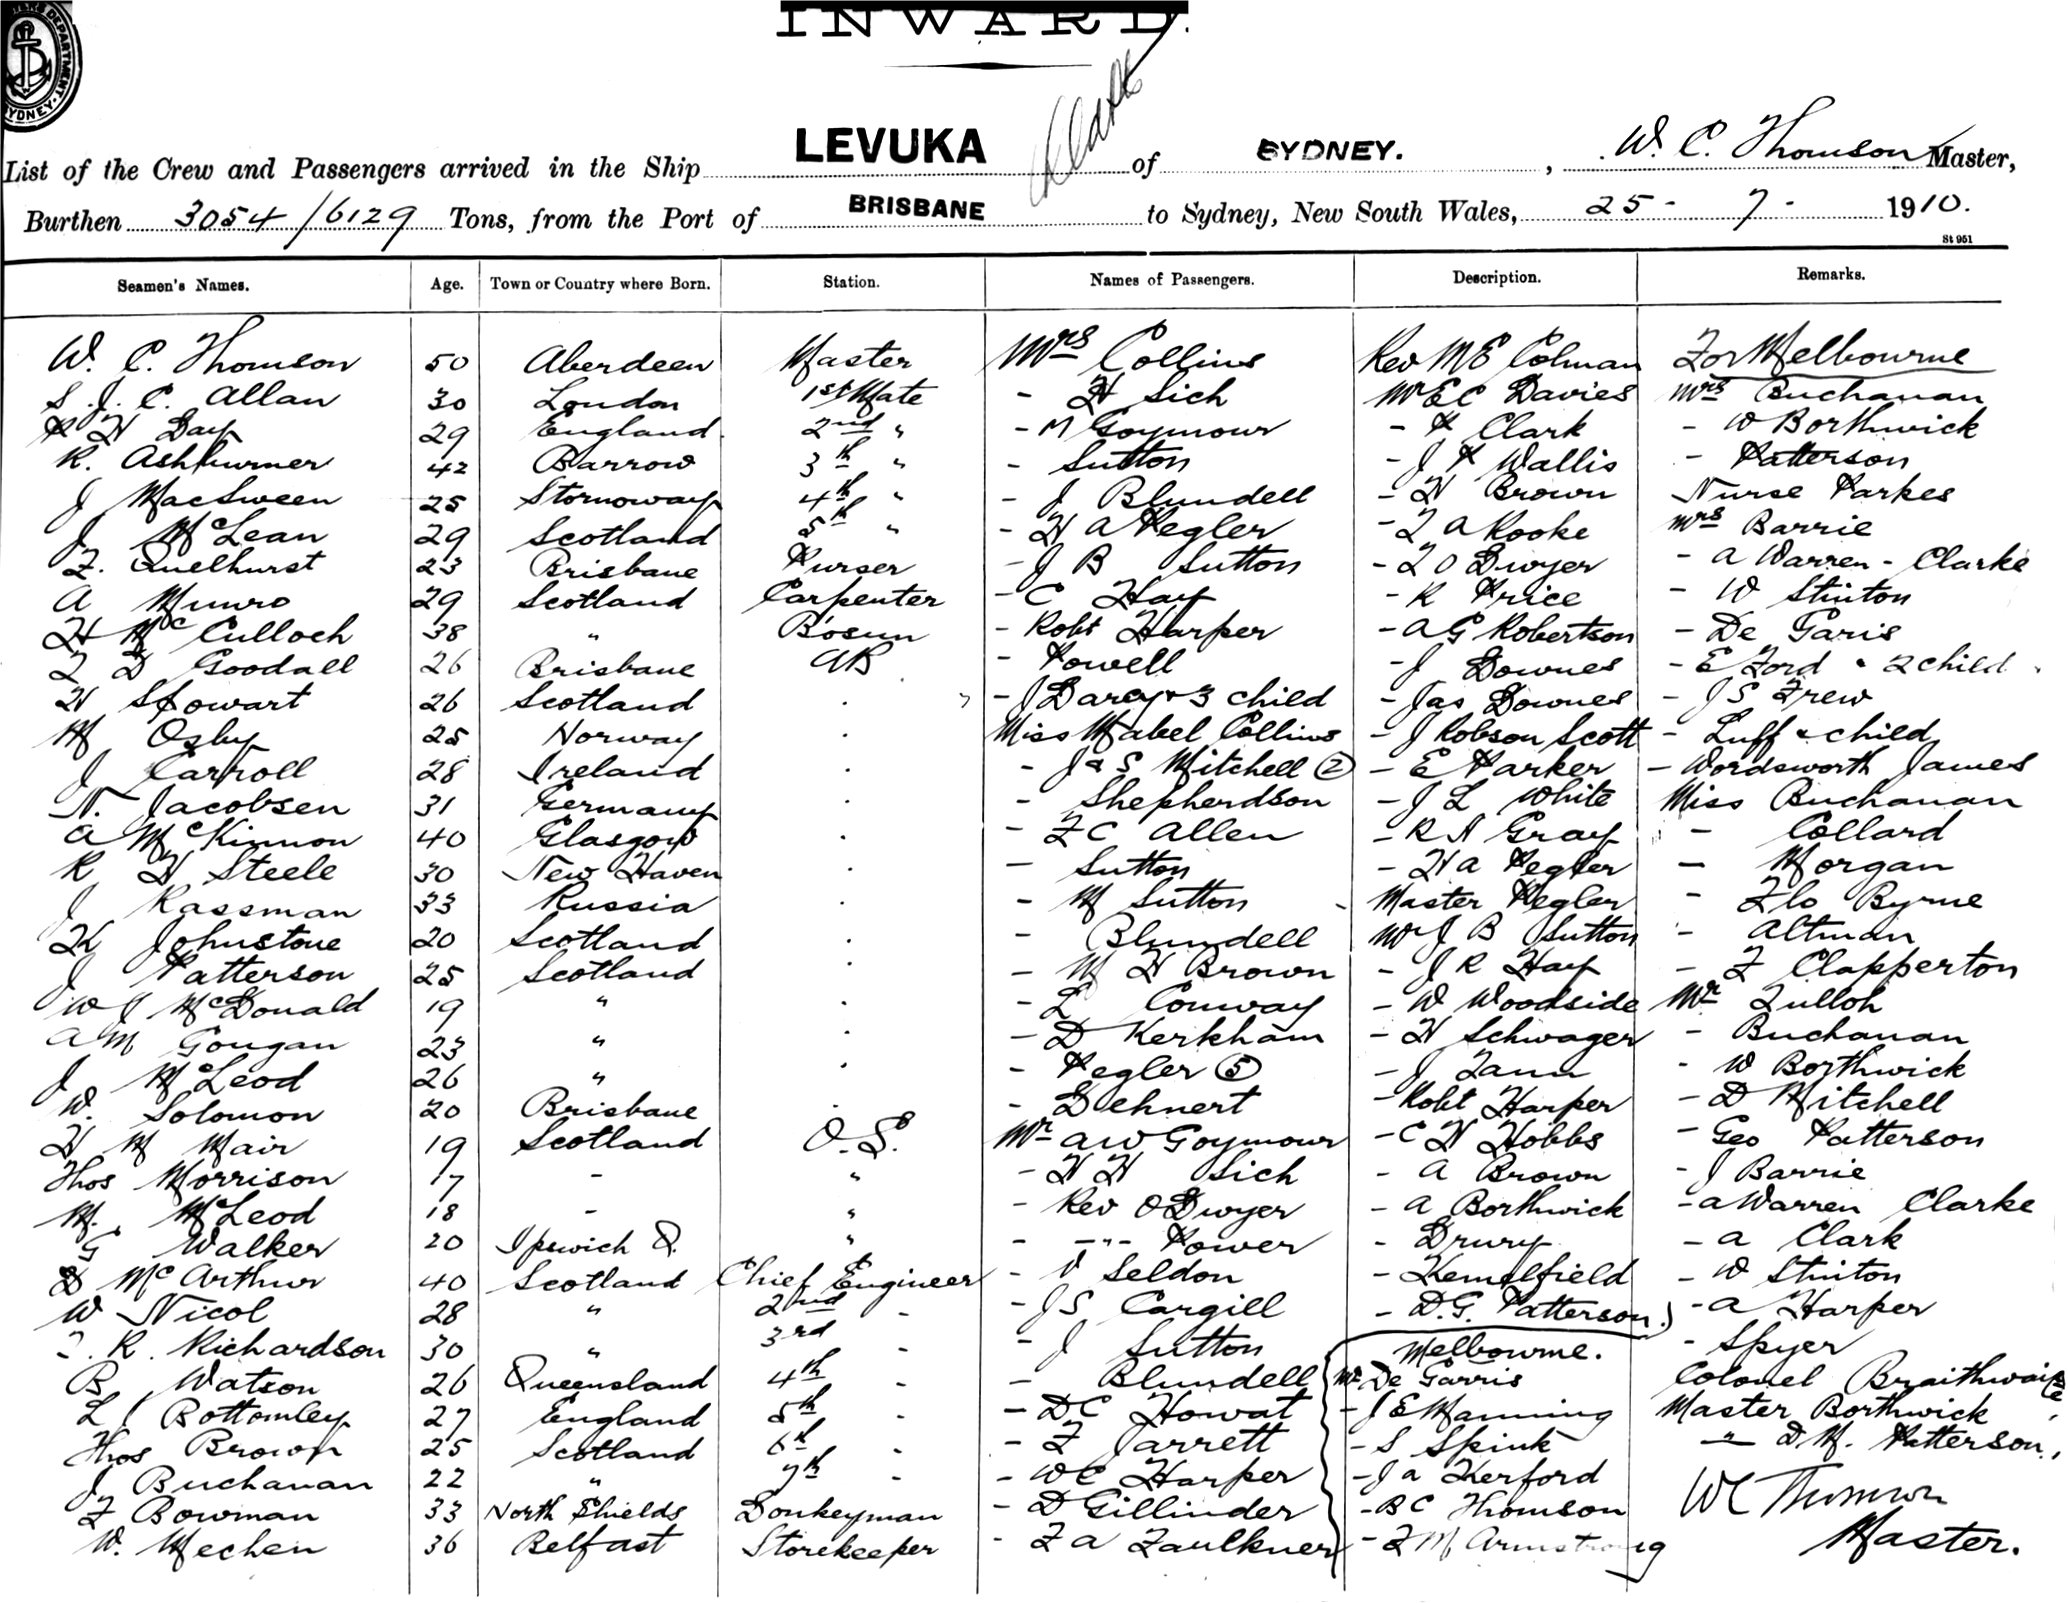 INWARD.
DEPARTMENT SYDNEY
List of the Crew and Passengers arrived in the Ship LEVUKA of SYDNEY. , W. C. Thomson Master,
Burthen 3054/6129 Tons, from the Port of BRISBANE to Sydney, New South Wales, 25 - 7 - 1910.
St 951
Seamen's Names. Age. Town or Country where Born. Station. Names of Passengers. Description. Remarks.
W. C. Thomson 50 Aberdeen Master Mrs Collins Rev M E Colman For Melbourne
S. J. C. Allan 30 London 1st Mate - H Sich Mr E C Davies Mrs Buchanan
H Day 29 England. 2nd " - M Goymour - P Clark - W Borthwick
R. Ashburner 42 Barrow 3th " - Sutton - J P Wallis - Patterson
J MacSween 25 Stornoway 4th " - J Blundell - H Brown Nurse Parkes
J McLean 29 Scotland 5th " - H A Pegler - F A Rooke Mrs Barrie
F. Quelhurst 23 Brisbane Purser - J B Sutton - F O Dwyer - A Warren - Clarke
A Munro 29 Scotland Carpenter - C Hay - R Price - W Stinton
H McCulloch 38 " Bosun - Robt Harper - A G Robertson - De Garis
F D Goodall 26 Brisbane AB - Powell - J Downes - E Ford & 2 child
H Stowart 26 Scotland . - J Darcy & 3 child - Jas Downes - J S Frew
M Osby 25 Norway . Miss Mabel Collins - J Robson Scott - Luff & child
J Carroll 28 Ireland . - J & S Mitchell (2) - E Parker - Wordsworth James
N. Jacobsen 31 Germany . - Shepherdson - J L White Miss Buchanan
A McKinnon 40 Glasgow . - F C Allen - R N Gray - Collard
R H Steele 30 New Haven . - Sutton - H A Pegler - Morgan
J Kassman 33 Russia . - M Sutton - Master Pegler - Flo Byrne
K Johnstone 20 Scotland . - Blundell Mr J B Sutton - Altman
J Patterson 25 Scotland . - M H Brown - J R Hay - F Clapperton
W J McDonald 19 " . - L Conway - W Woodside Mr Tulloh
A M Gougan 23 " . - D Kerkham - H Schwager - Buchanan
J McLeod 26 " . - Pegler (5) - J Tann - W Borthwick
W. Solomon 20 Brisbane . - Dehnert - Robt Harper - D Mitchell
H M Mair 19 Scotland O. S. Mr A W Goymour - C H Hobbs - Geo Patterson
Thos Morrison 17 - " - H H Sich - A Brown - J Barrie
M. McLeod 18 - " - Rev O Dwyer - A Borthwick - A Warren Clarke
G Walker 20 Ipswich Q. " - -"- Power - Drury - A Clark
D McArthur 40 Scotland Chief Engineer - Seldon - Kemelfield - W Stinton
W Nicol 28 " 2nd - - J S Cargill - D. G. Patterson. - A Harper
R. Richardson 30 " 3rd - - J Sutton Melbourne. - Spyer
B Watson 26 Queensland 4th - - Blundell Mr De Garris Colonel Braithwaite
L J Bottomley 27 England 5th - - D C Howat - J E Manning Master Borthwick
Thos Brown 25 Scotland 6th - - F Jarrett - S Spink - " - D M. Patterson,
J Buchanan 22 " 7th - - W C Harper - J A Kerford
F Bowman 33 North Shields Donkeyman - D Gillinder - B C Thomson W C Thomson
W. Mechen 36 Belfast Storekeeper - F A Faulkner - F M Armstrong Master.